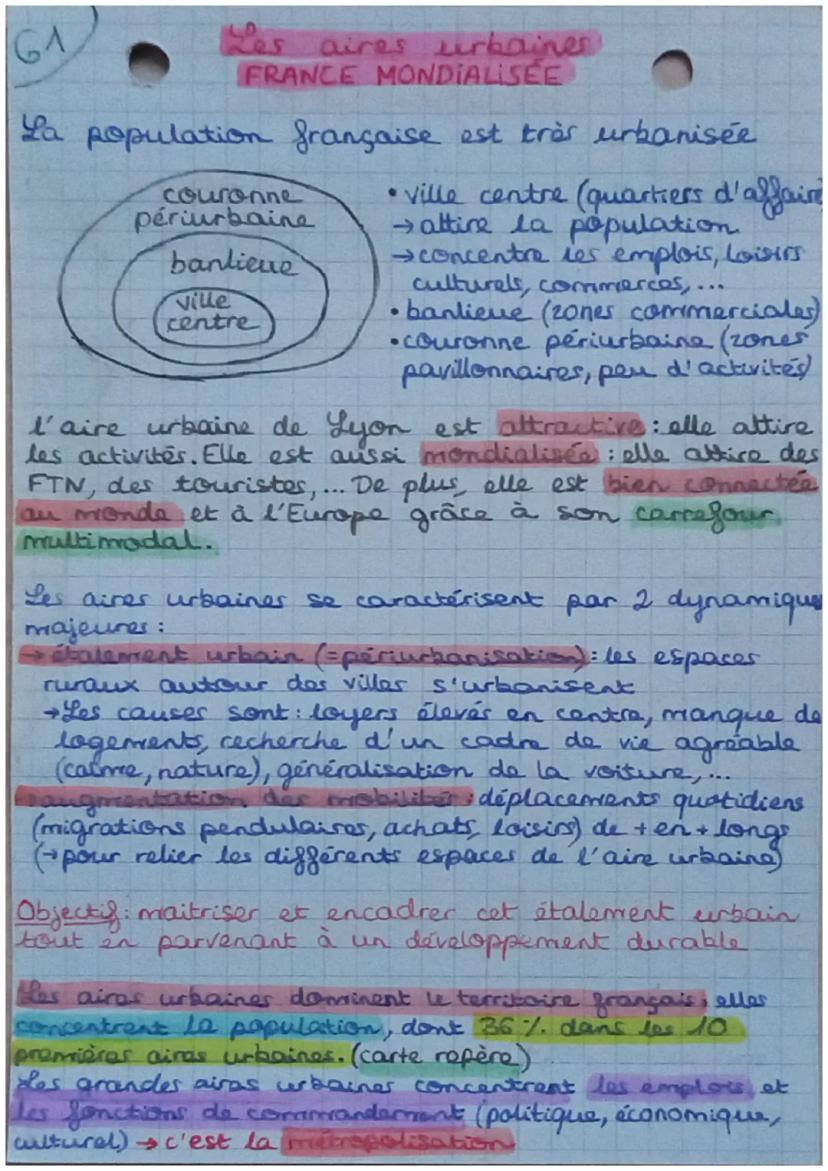 G1
Les aires urbaines
FRANCE MONDIALISÉE
La population française est très urbanisée
couronne
périurbaine
banlieue
ville
centre
• ville centre (quartiers d'affaire
→ attire la population
→ concentre les emplois, loisirs
culturels, commerces, ...
• banlieue (zones commerciales)
• couronne périurbaine (zones
pavillonnaires, peu d'activités)
l'aire urbaine de Lyon est attractive : elle attire
les activités. Elle est aussi mondialisée : elle attire des
FTN, des touristes, ... De plus, elle est bien connectée
au monde et à l'Europe grâce à son carrefour
multimodal.
Les aires urbaines se caractérisent par 2 dynamique
majeures :
→ étalement urbain (= périurbanisation) : les espaces
ruraux autour des villes s'urbanisent
→ Les causes sont : loyers élevés en centre, manque de
logements, recherche d'un cadre de vie agréable
(calme, nature), généralisation de la voiture, ...
augmentation des mobilités : déplacements quotidiens
(migrations pendulaires, achats, loisirs) de + en + longs
(→ pour relier les différents espaces de l'aire urbaine)
Objectif : maitriser et encadrer cet étalement urbain
tout en parvenant à un développement durable
Les aires urbaines dominent le territoire français, elles
concentrent la population, dont 36 % dans les 10
premières aires urbaines. (carte repère)
Les grandes aires urbaines concentrent les emplois, et
les fonctions de commandement (politique, économique,
culturel) → c'est la métropolisation